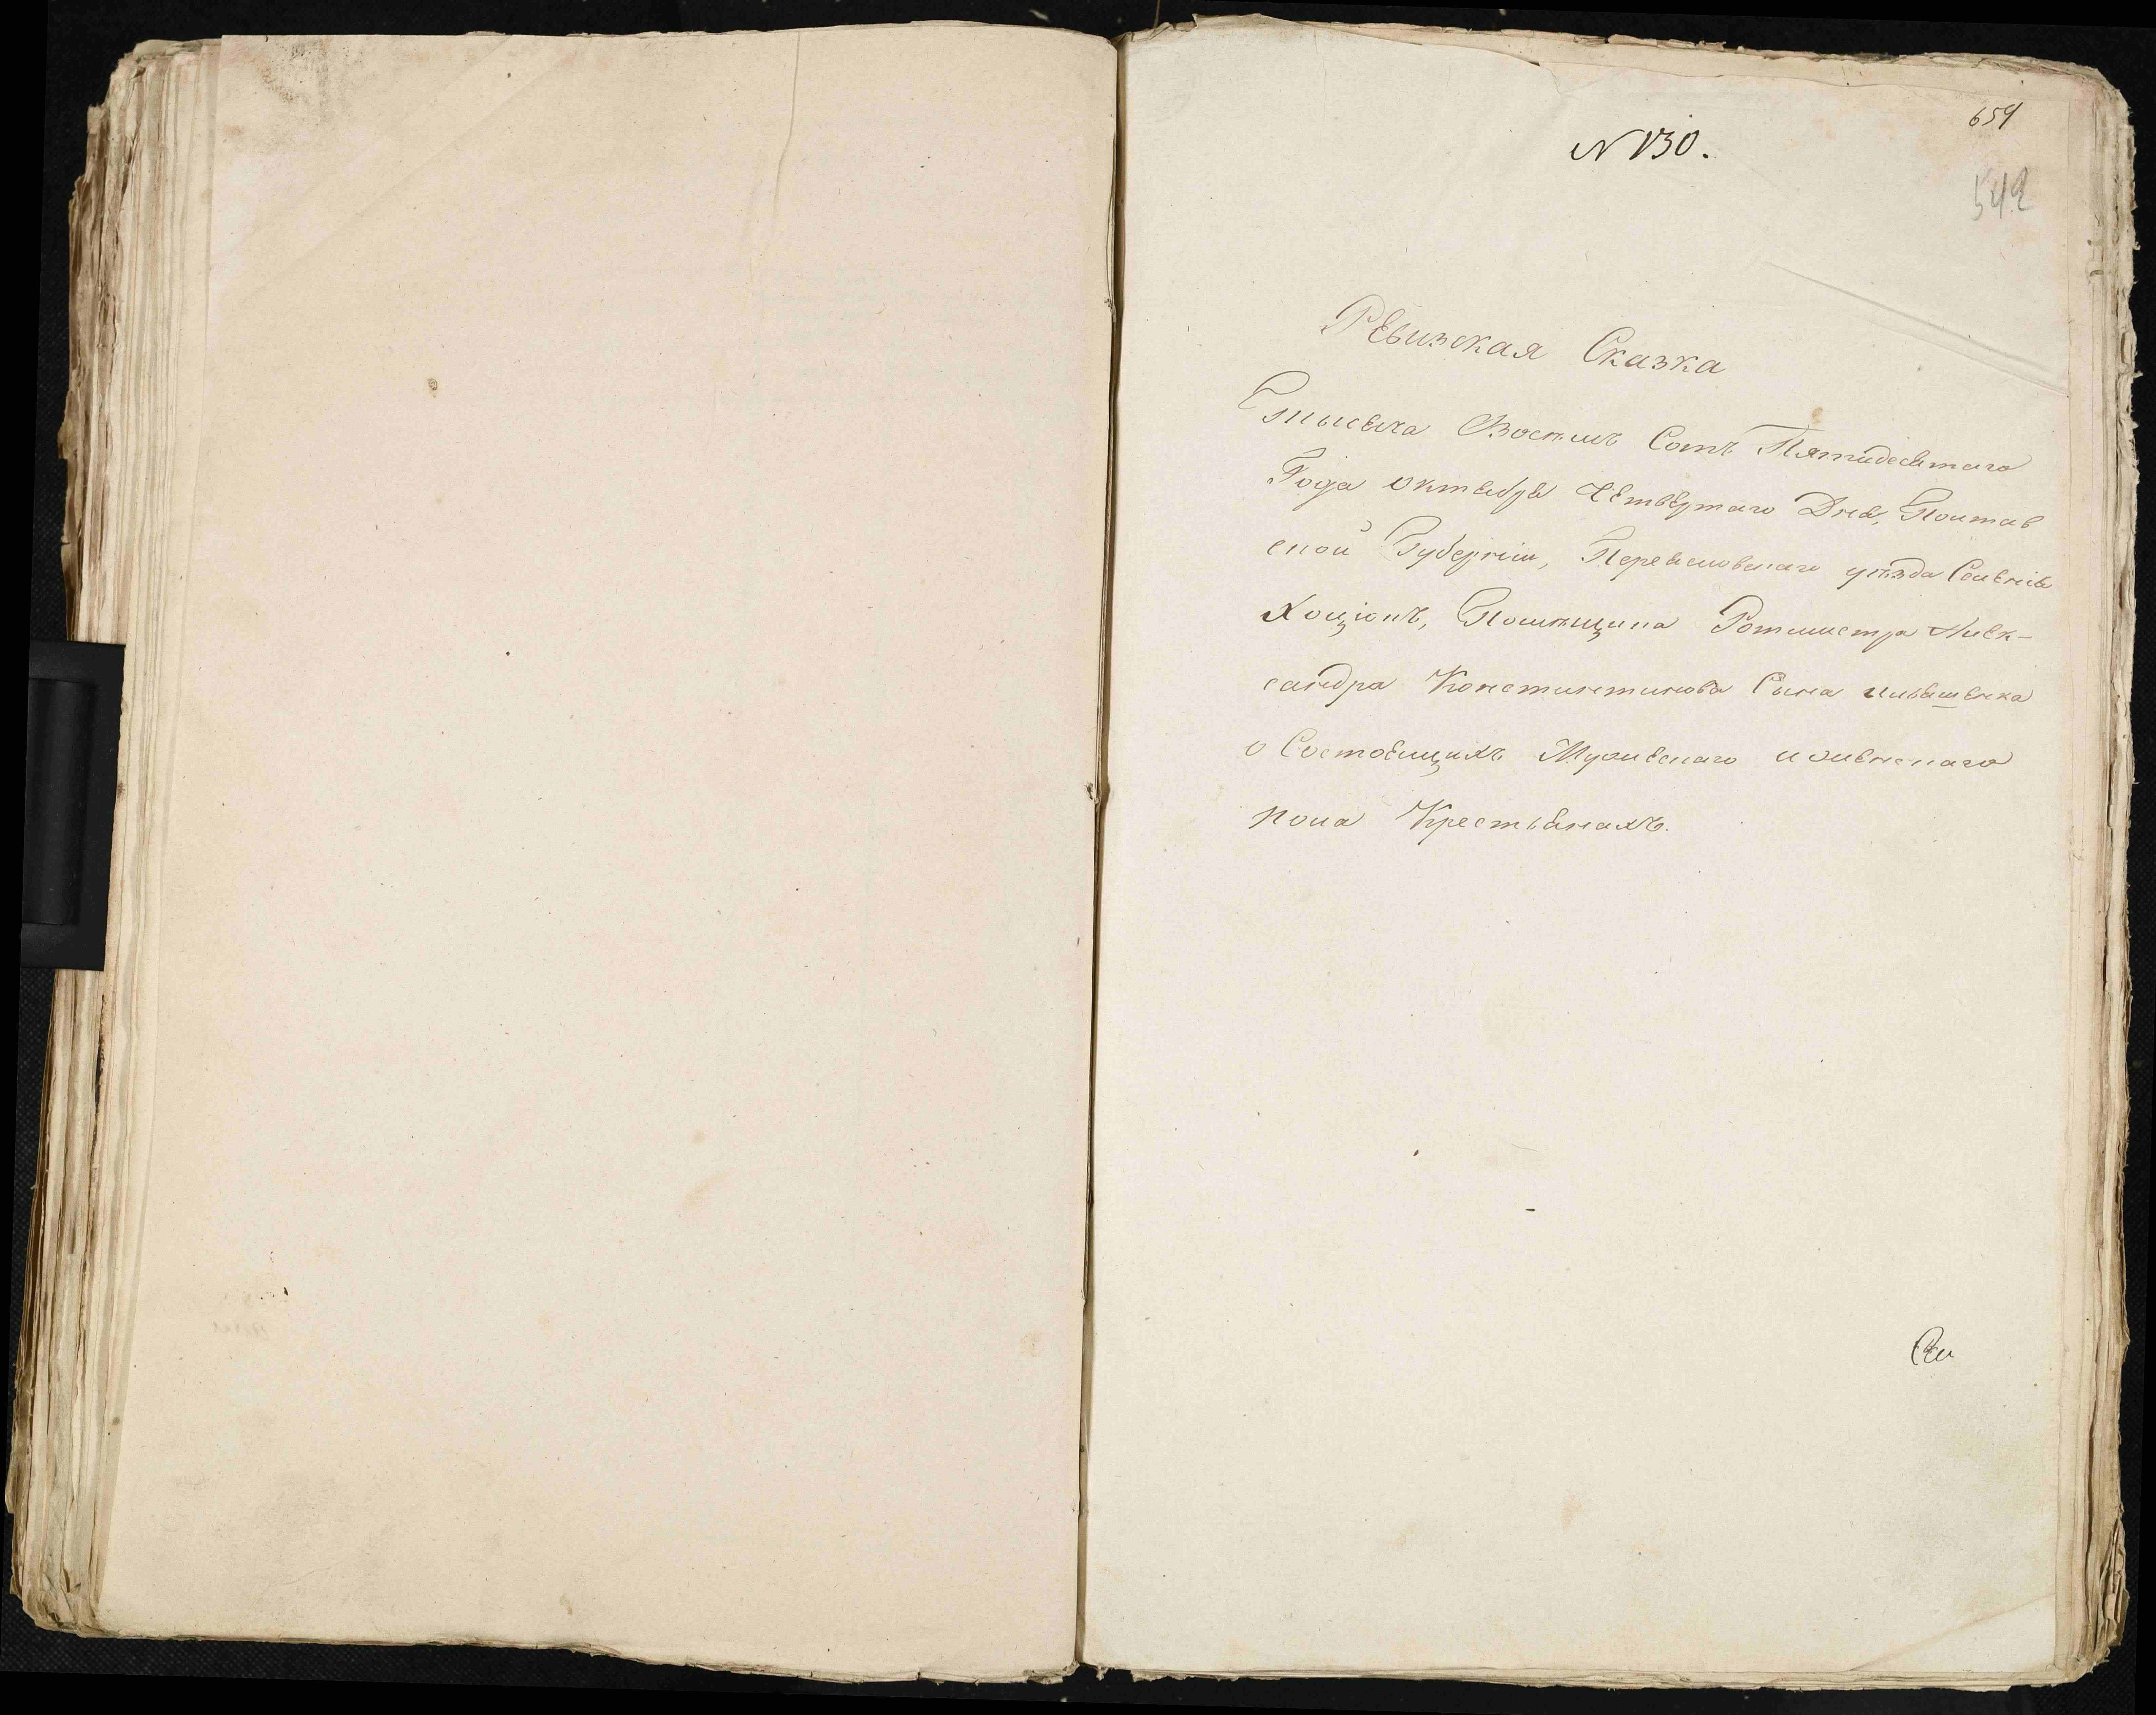 659
N 130.
542
Ревизская Сказка
Тысяча Восемь Сотъ Пятидесятаго
Года Октября Четвертаго Дня, Полтав
ской Губерніи, Переясловскаго уѣзда Селенія
Хоцюкъ, Помѣщика Ротмистра Алек-
сандра Константинова Сына Ильяшенка
о Состоящихъ Мужескаго и женскаго
пола Крестьянахъ.